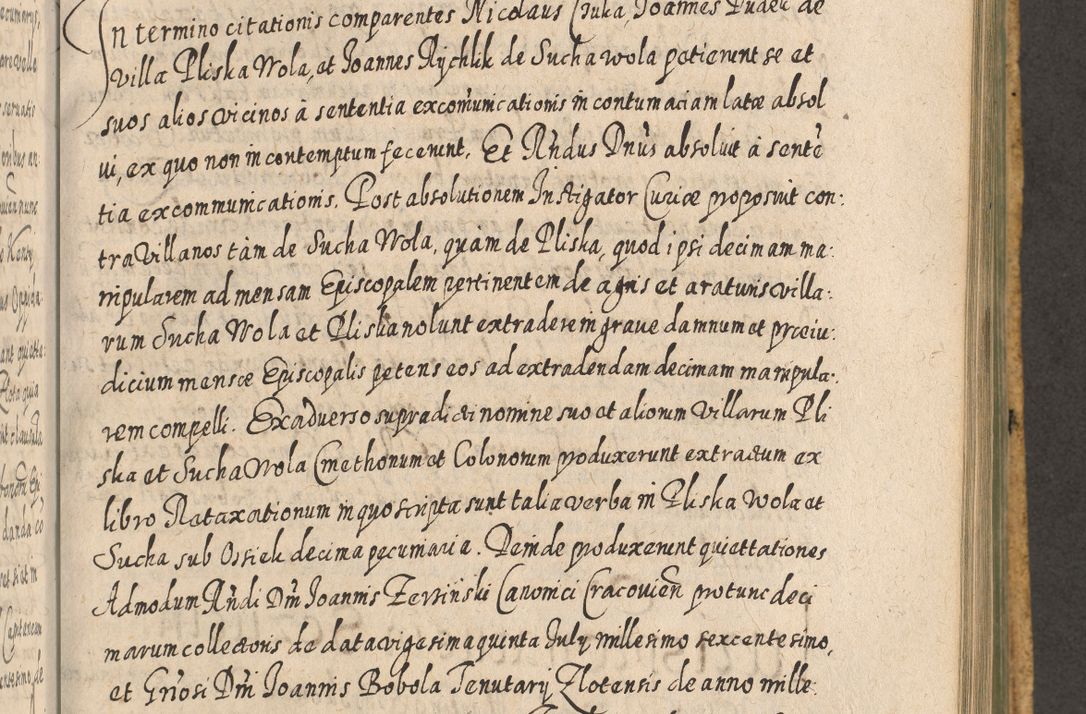 In termino citationis comparentes Nicolaus Cziuka, Joannes Dudek de
villa Pliska Wola, et Joannes Rychlik de Suchawola petierunt se et
suos alios vicinos à sententia excom̃unicationis in contumaciam latæ absol
vi, ex quo non in contemptum fecerunt. Et Rñdus Dñus absoluit à sentẽ
tia excommunicationis. Post absolutionem Instigator Curiæ proposuit con:
tra Villanos tàm de Sucha Wola, quàm de Pliska, quod ipsi decimam ma:
nipularem ad mensam Episcopalem pertinentem de agris et araturis villa:
rum Sucha Wola et Pliska nolunt extradere in graue damnum et præiu:
dicium mensæ Episcopalis petens eos ad extradendam decimam manipula:
rem compelli. Ex aduerso supradicti nomine suo et aliorum Villarum Pli
ska et Sucha Wola Cmethonum et Colonorum produxerunt extractum ex
libro Rataxationum in quo scripta sunt talia verba in Pliska Wola et
Sucha sub Ossiek decima pecuniaria. Deinde produxerunt quiettationes
Admodum Rñdi Dñi Joannis Zerzinski Canonici Cracovieñ pro tunc deci
marum collectoris de data vigesima quinta July millesimo sexcentesimo,
et Gñosi Dñi Joannis Bobola Tenutarij Zlotensis de anno mille: